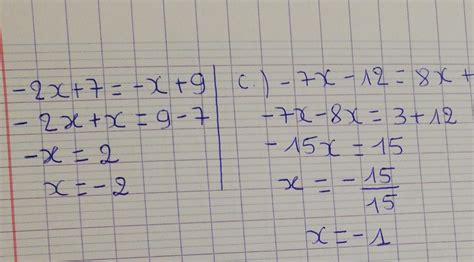 -2x+7=-x+9
-2x+x=9-7
-x=2
x=-2
c.) -7x-12=8x+
-7x-8x=3+12
-15x=15
x=-15/15
x=-1